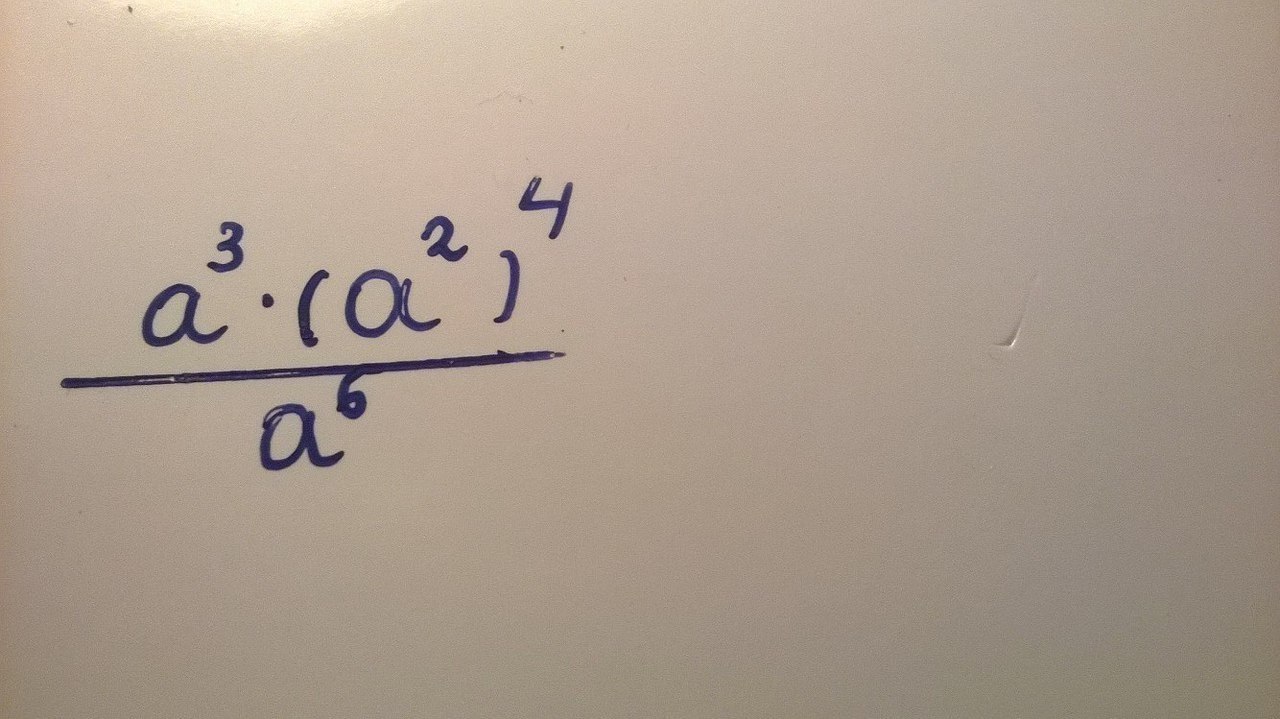 a³·(a²)⁴
a⁶